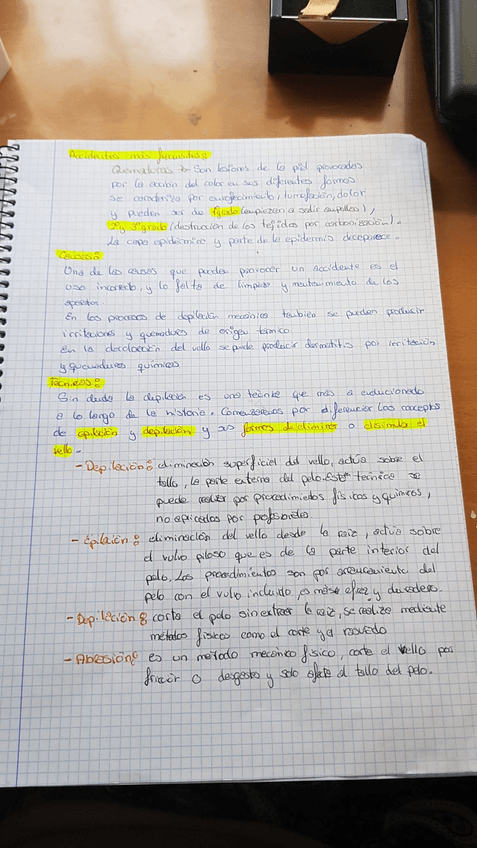 Accidentes más frecuentes:
Quemaduras → Son lesiones de la piel provocadas
por la acción del calor en sus diferentes formas
se caracteriza por enrojecimiento, tumefación, dolor
y pueden ser de 1ºgrado (empiezan a salir ampollas),
2º y 3ºgrado (destrucción de los tejidos por carbonización).
La capa epidérmica y parte de la epidermis desaparece.
Causas:
Una de las causas que pueden provocar un accidente es el
uso incorrecto, y la falta de limpieza y mantenimiento de los
aparatos.
En los procesos de depilación mecánica también se pueden producir
irritaciones y quemaduras de origen térmico
En la decoloración del vello se puede producir dermatitis por irritación
y quemaduras químicas
Técnicas:
Sin duda la depilación es una técnica que más a evolucionado
a lo largo de la historia. Comenzaremos por diferenciar los conceptos
de epilación y depilación y sus formas de eliminar o disimular el
vello.
- Depilación: eliminación superficial del vello, actúa sobre el
tallo, la parte externa del pelo. Esta técnica se
puede realizar por procedimientos físicos y químicos,
no aplicados por profesionales.
- Epilación: eliminación del vello desde la raiz, actúa sobre
el vulvo piloso que es de la parte interior del
pelo, Los procedimientos son por arrancamiento del
pelo con el vulvo incluido, es más eficaz y duradero.
- Depilación: corta el pelo sin extraer la raiz, se realiza mediante
métodos físicos como el corte y el rasurado
- Abrasión: es un método mecánico físico, corta el vello por
fricción o desgaste y solo afecta al tallo del pelo.